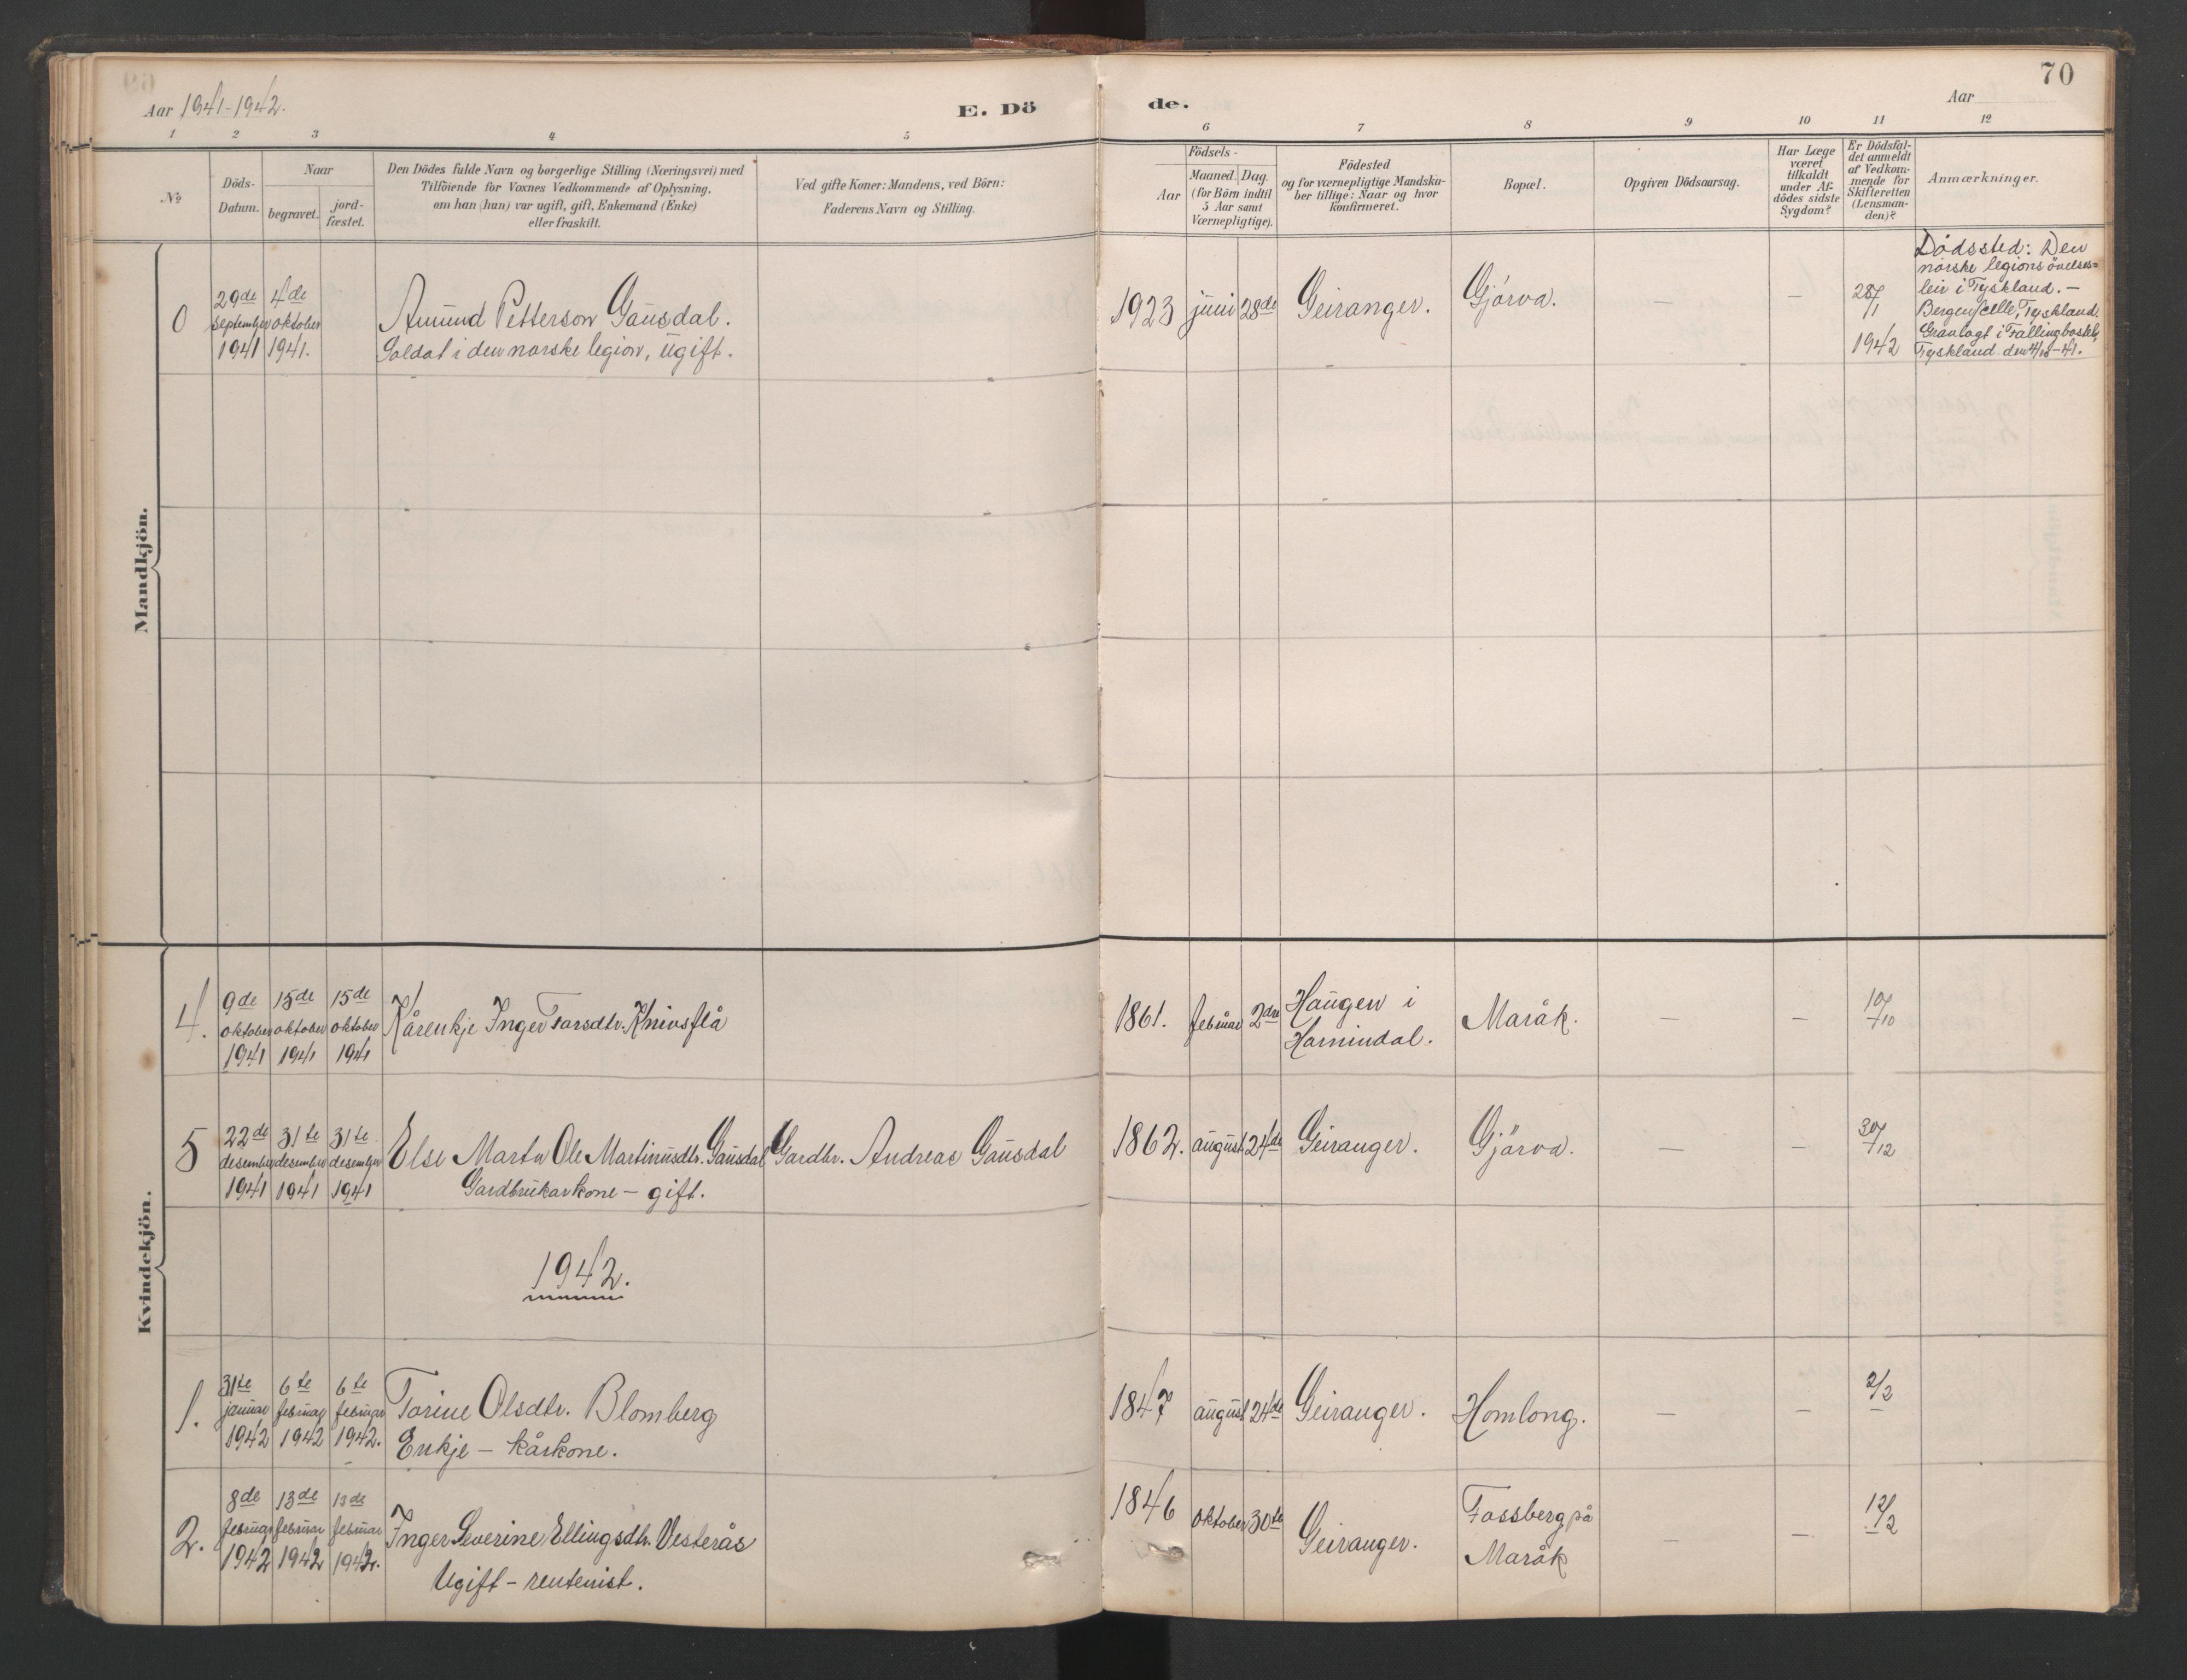 70
Aar 1941-1942.
E. Dö
de.
Aar
1 2 3 4 5 6 7 8 9 10 11 12
No
Döds-
Datum.
Naar
begravet.
jord-
fæstet.
Den Dödes fulde Navn og borgerlige Stilling (Næringsvei) med
Tilföiende for Voxnes Vedkommende af Oplysning,
om han (hun) var ugift, gift, Enkemand (Enke)
eller fraskilt.
Ved gifte Koner: Mandens, ved Börn:
Faderens Navn og Stilling.
Födsels-
Aar
Maaned. Dag.
(for Börn indtil
5 Aar samt
Værnepligtige).
Födested
og for værnepligtige Mandska-
ber tillige: Naar og hvor
konfirmeret.
Bopæl.
Opgiven Dödsaarsag.
Har Læge
været
tilkaldt
under Af-
dödes sidste
Sygdom?
Er Dödsfal-
det anmeldt
af Vedkom-
mende for
Skifteretten
(Lensman-
den)?
Anmærkninger.
Mandkjön.
0
29de
september
1941
4de
oktober
1941.
Amund Petterson Gausdal.
Soldat i den norske legion, ugift.
1923 juni 28de
Geiranger.
Gjörva.
—
—
28/1
1942
Dödssted: Den
norske legions övelses=
leir i Tyskland. —
Bergen/Celle, Tyskland.
Gravlagt i Fallingbostel,
Tyskland den 4/10-41.
Kvindekjön.
4.
9de
oktober
1941
15de
oktober
1941
15de
oktober
1941
Kårenkje Inger Tarsdtr. Knivsflå
1861. februar 2dre
Haugen i
Hornindal.
Maråk.
—
—
10/10
5
22de
desember
1941
31te
desember
1941
31te
desember
1941
Else Marta Ole Martinusdtr. Gausdal
Gardbrukarkone — gift.
Gardbr. Andreas Gausdal
1862. august 24de
Geiranger.
Gjörva.
—
—
30/12
1942.
1.
31te
januar
1942
6te
februar
1942
6te
februar
1942.
Torine Olsdtr. Blomberg
Enkje — kårkone.
1847 august 24de
Geiranger.
Homlong.
—
—
2/2
2.
8de
februar
1942
13de
februar
1942
13de
februar
1942.
Inger Severine Ellingsdtr. Vesterås
Ugift — rentenist.
1846 oktober 30te
Geiranger.
Fossberg på
Maråk
—
—
12/2